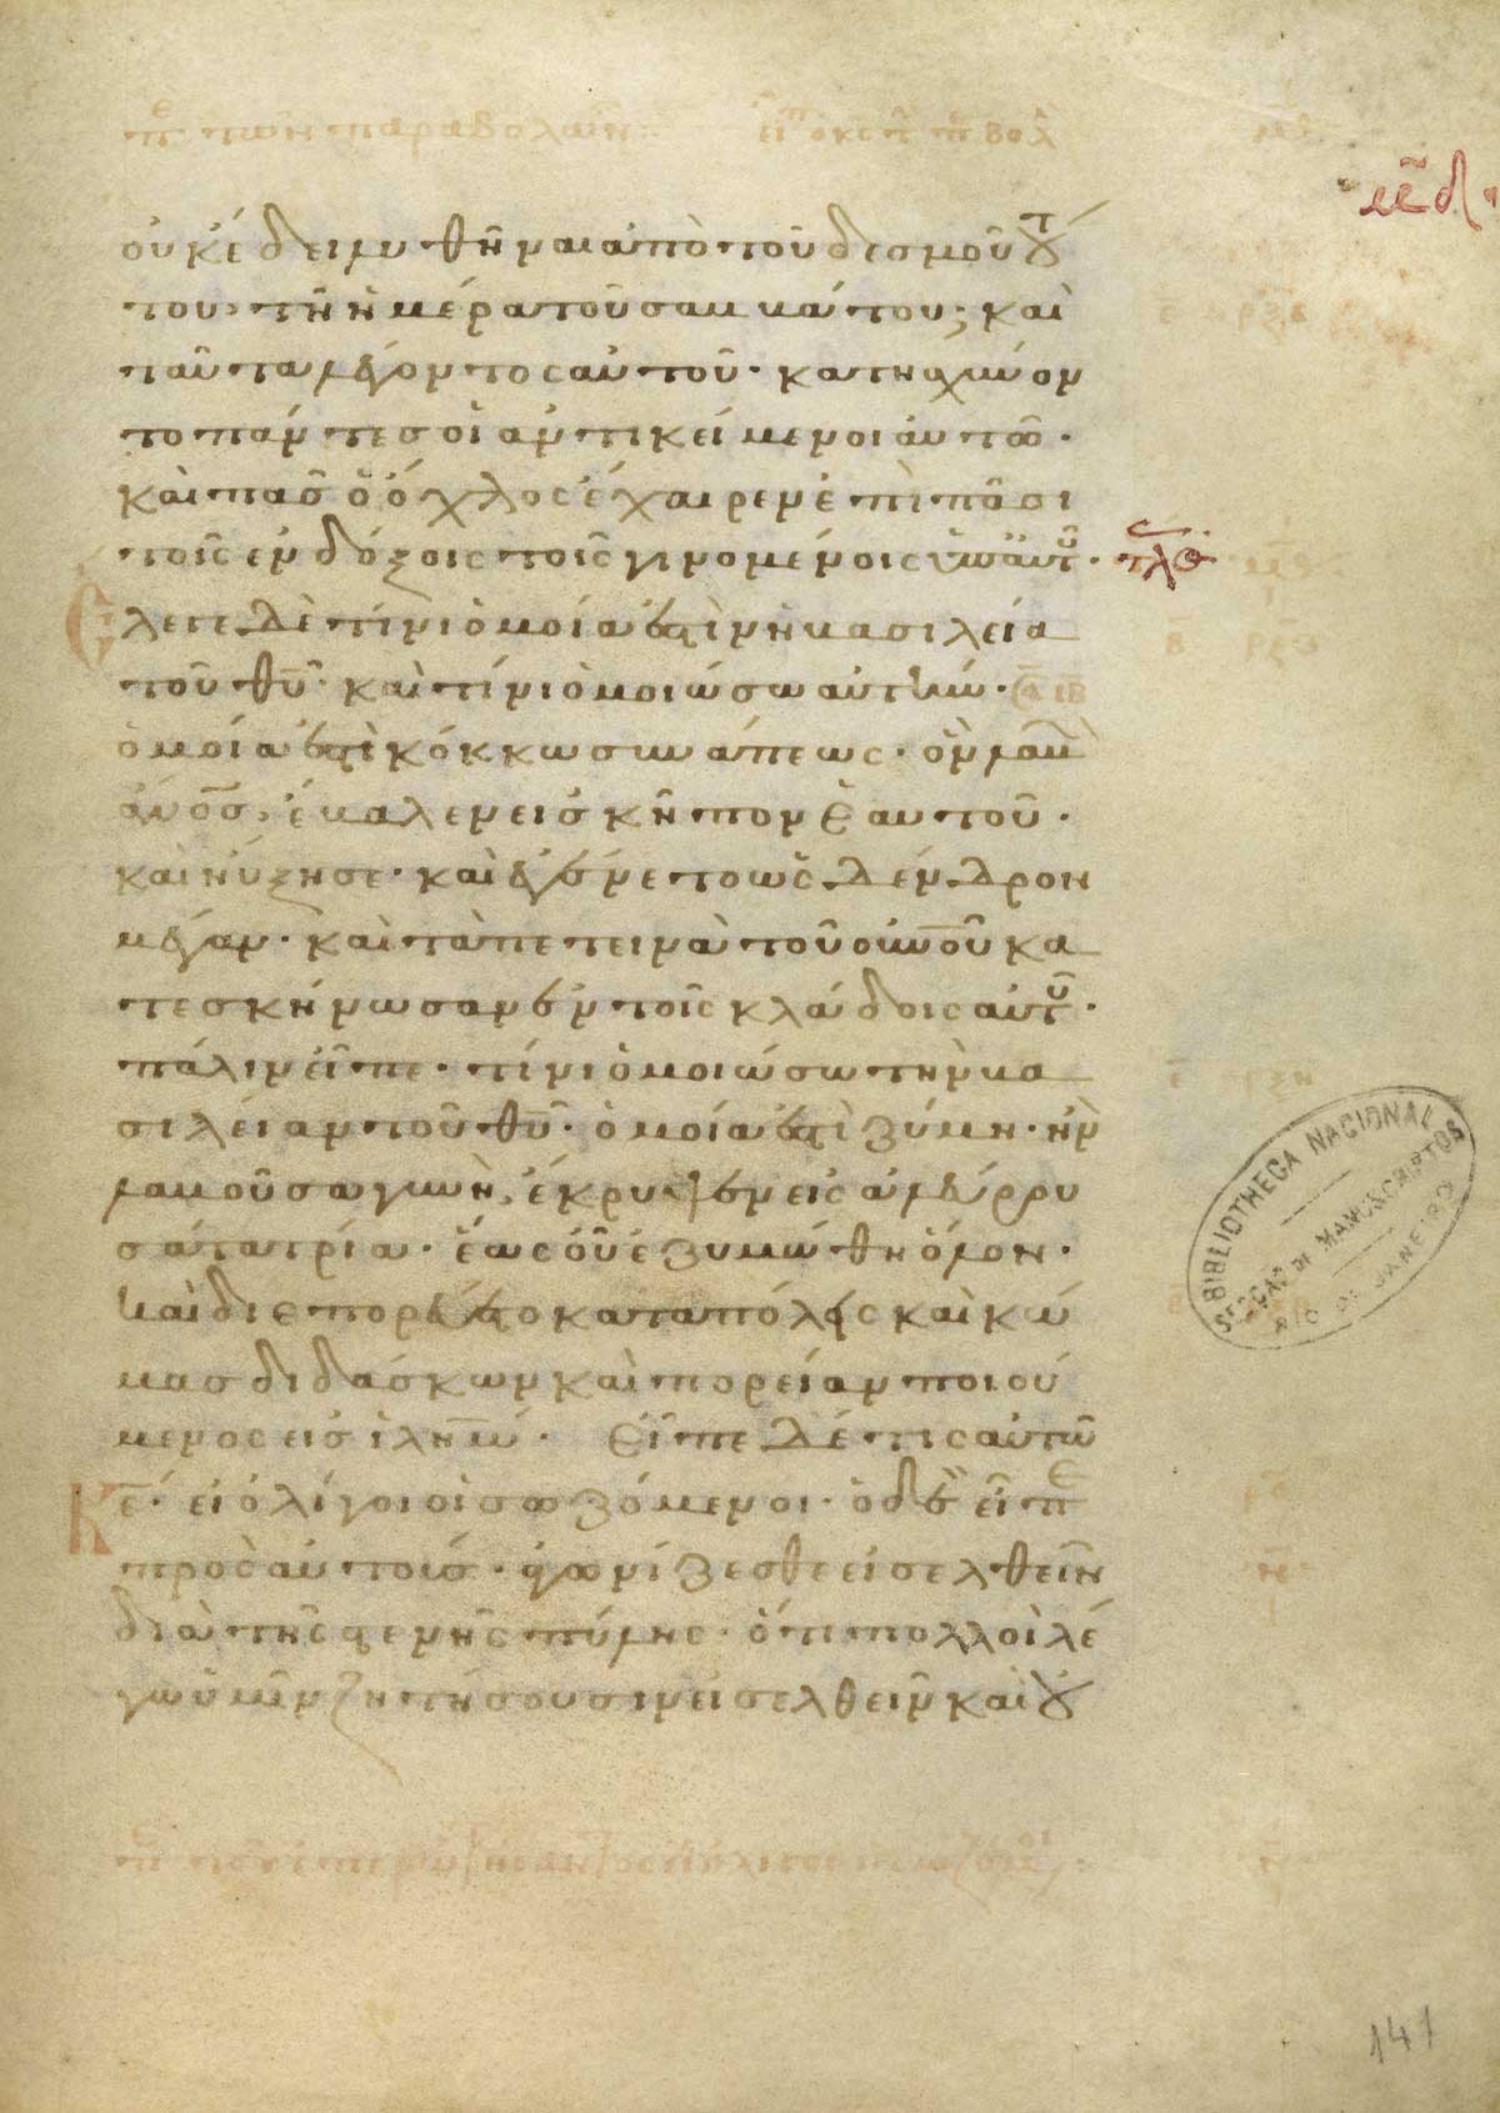 οὐκ ἔδει λυθῆναι ἀπὸ τοῦ δεσμοῦ τού
του, τῆ ἡμέρα τοῦ σαββάτου; καὶ
ταῦτα λέγοντος αὐτοῦ· κατησχύνον
το πάντες οἱ ἀντικείμενοι αὐτῶ·
καὶ πᾶς ὁ ὄχλος ἔχαιρεν ἐπὶ πᾶσι
τοῖς ἐνδόξοις τοῖς γινομένοις ὑπ' αὐτοῦ·
Ἔλεγε δὲ τίνι ὁμοία ἐστὶν ἡ βασιλεία
τοῦ θυ̅· καὶ τίνι ὁμοιώσω αὐτήν·
ὁμοία ἐστὶ κόκκω σινάπεως· ὃν λαβὼν
ἀνο̅σ, ἔβαλεν εἰς κῆπον ἑαυτοῦ·
καὶ ηὔξησε· καὶ ἐγένετο ὡς δένδρον
μέγαν· καὶ τὰ πετεινὰ τοῦ οὐνο̅υ κα
τεσκήνωσαν ἐν τοῖς κλάδοις αὐτοῦ·
πάλιν εἶπε· τίνι ὁμοιώσω τὴν βα
σιλείαν τοῦ θυ̅· ὁμοία ἐστὶ ζύμη· ἣν
λαβοῦσα γυνὴ, ἔκρυψεν εἰς ἀλεύρου
σάτα τρία· ἕως οὗ ἐζυμώθη ὅλον·
καὶ διεπορεύετο κατὰ πόλεις καὶ κώ
μας διδάσκων καὶ πορείαν ποιού
μενος εἰς ἰλη̅μ· Εἶπε δέ τις αὐτῶ
Κε̅· εἰ ὀλίγοι οἱ σωζόμενοι· ὁ δὲ εἶπε
πρὸς αὐτούς· ἀγωνίζεσθε εἰσελθεῖν
διὰ τῆς στενῆς πύλης· ὅτι πολλοὶ λέ
γω ὑμῖν ζητήσουσιν εἰσελθεῖν καὶ οὐ
BIBLIOTHECA NACIONAL
SECÇÃO DE MANUSCRIPTOS
RIO DE JANEIRO
141